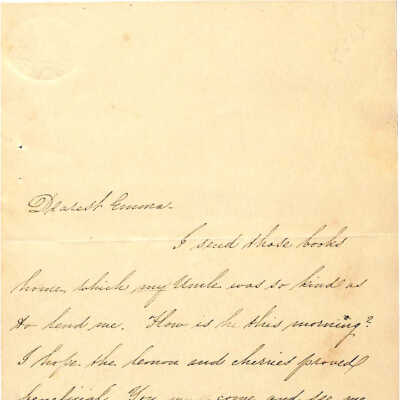 Dearest Emma.
I send those books
home, which my Uncle was so kind as
to lend me. How is he this morning?
I hope the lemon and cherries proved
beneficial. You must come and see me